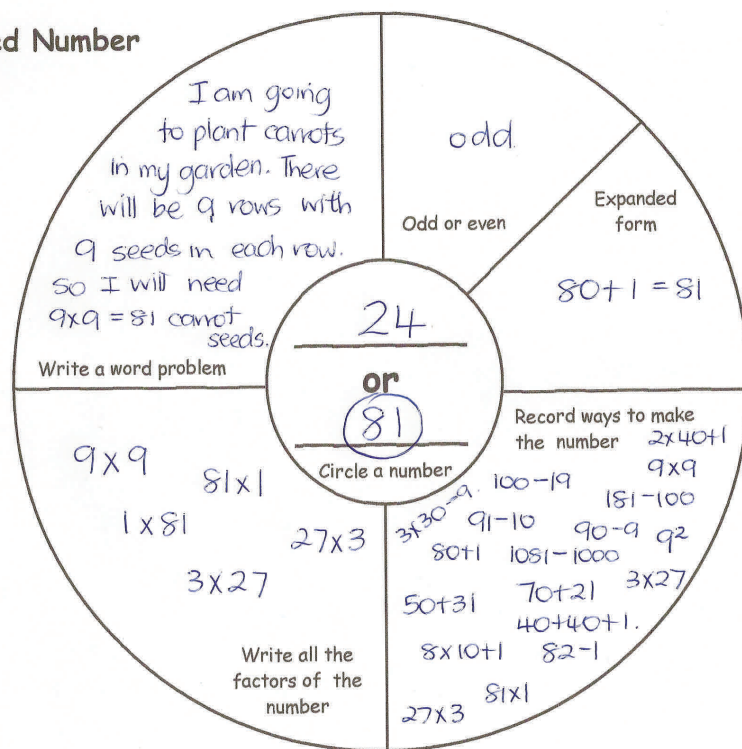 ed Number
I am going
to plant carrots
in my garden. There
will be 9 rows with
9 seeds in each row.
so I will need
9x9 = 81 carrot
seeds.
Write a word problem
odd.
Odd or even
Expanded
form
80+1 = 81
24
or
81
Circle a number
Record ways to make
the number 2x40+1
9x9
3x30-9. 100-19
181-100
91-10 90-9 9²
80+1 1081-1000
50+31 70+21 3x27
40+40+1.
8x10+1 82-1
27x3 81x1
9x9
81x1
1x81
27x3
3x27
Write all the
factors of the
number